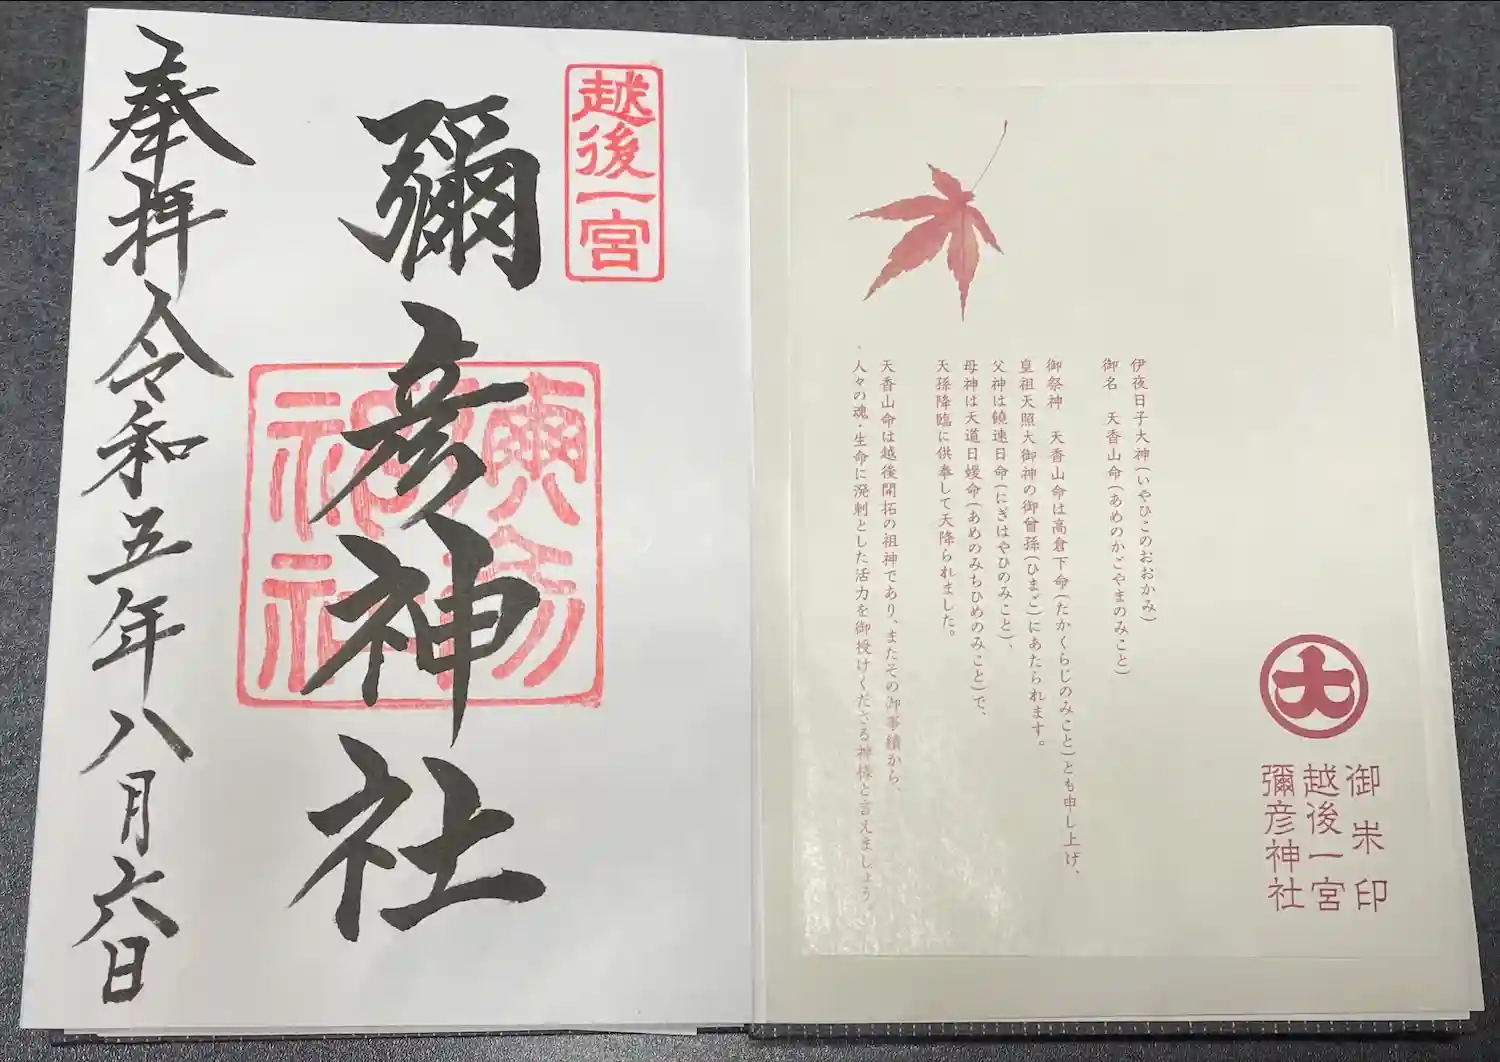 大
御朱印
越後一宮
彌彦神社
伊夜日子大神(いやひこのおおかみ)
御名　天香山命(あめのかごやまのみこと)
御祭神　天香山命は高倉下命(たかくらじのみこと)とも申し上げ、
皇祖天照大御神の御曾孫(ひまご)にあたられます。
父神は饒速日命(にぎはやひのみこと)、
母神は天道日媛命(あめのみちひめのみこと)で、
天孫降臨に供奉して天降られました。
天香山命は越後開拓の祖神であり、またその御事績から、
人々の魂・生命に溌剌とした活力を御授けくださる神様と言えましょう。
越後一宮
彌彦神社
彌彦神社
奉拝
令和五年八月六日